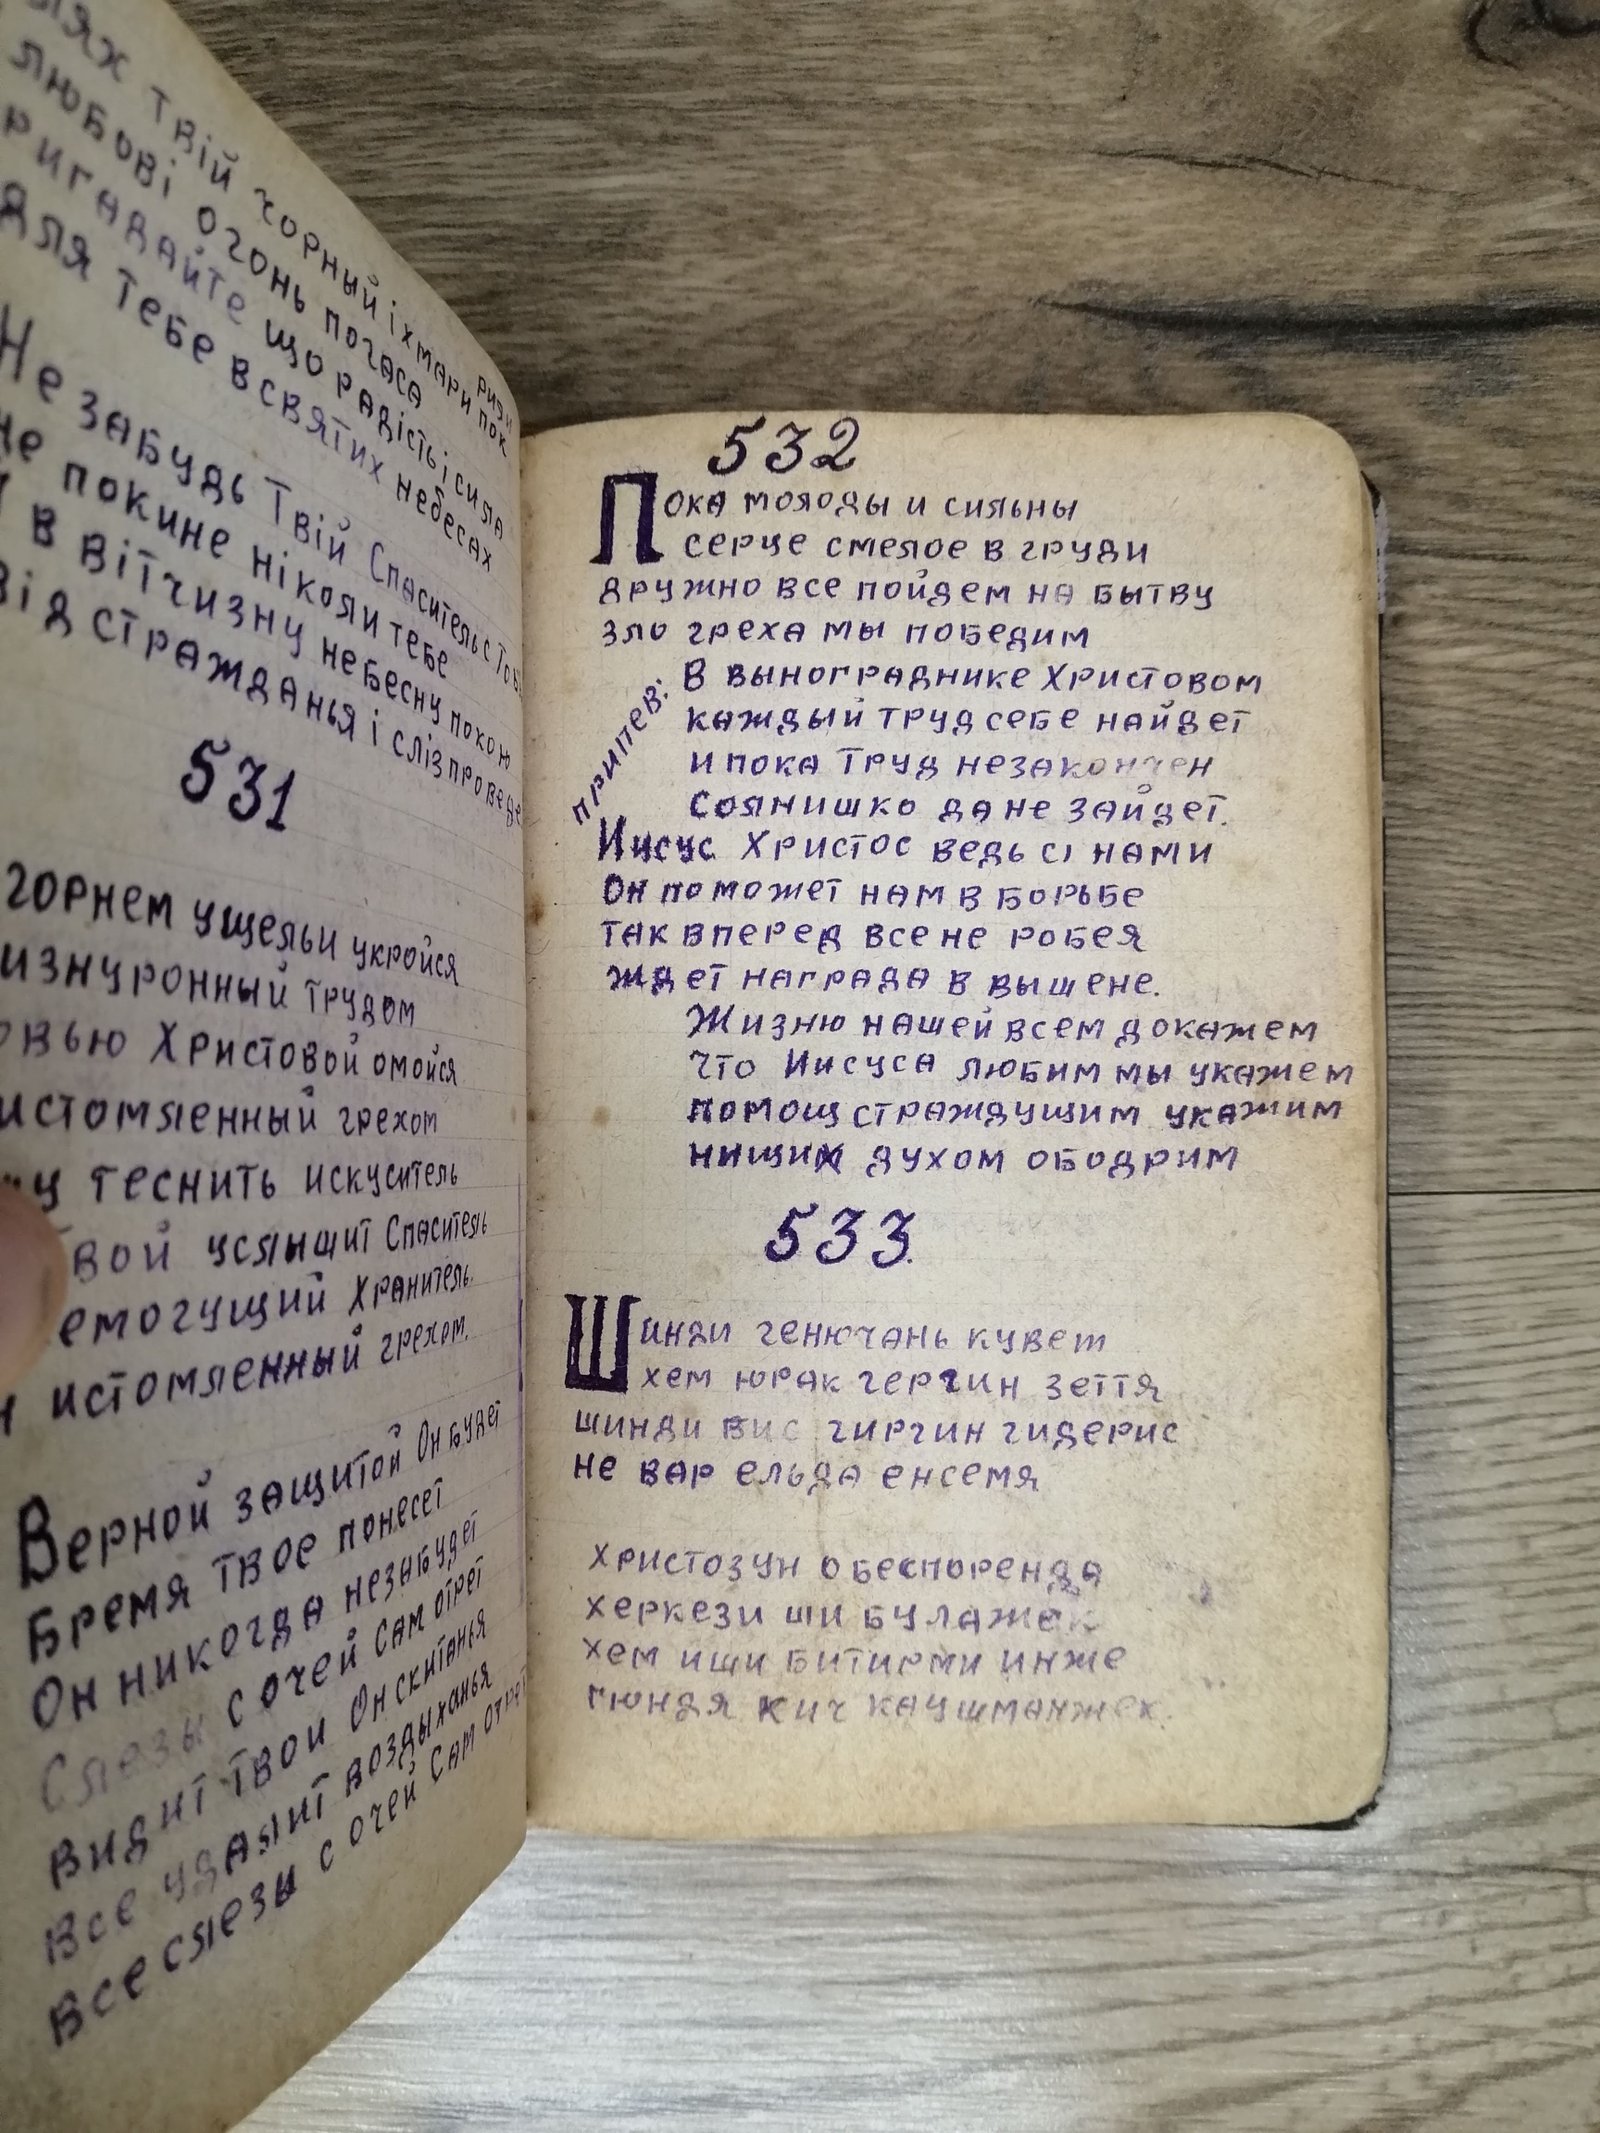 твій чорний і хмари пок
любові огонь погаса
що радість і сила
для тебе в святих небесах
Не забудь Твій Спаситель с
не покине ніколи тебе
в вітчизну небесну
від стражданья і сліз проведе
531
горнем ущельи укройся
изнуронный трудом
Христовой омойся
истомленный грехом
теснить искуситель
услышит Спаситель
Хранитель
истомленный грехом.
Верной защитой Он будет
Бремя твое понесет
Он никогда незабудет
Слезы с очей Сам отрет
видит твои Он скитанья
все удалит воздыханья
все слезы с очей Сам отрет
532
Пока молоды и сильны
серце смелое в груди
дружно все пойдем на бытву
зло греха мы победим
припев:
В выногра­днике Христовом
каждый труд себе найдет
и пока Труд незакончен
солнишко да не зайдет.
Иисус Христос ведь с нами
Он поможет нам в борьбе
так вперед все не робея
ждет награда в вышене.
Жизню нашей всем докажем
что Иисуса любим мы укажем
помощ страждущим укажим
нищих духом ободрим
533.
Шинди генючань кувет
хем юрак гергин зеття
шинди вис гиргин гидерис
не вар ельда енсемя
Христозун обеспоренда
херкези ши булажек
хем иши битирми инже
гюндя кич каушманжек.